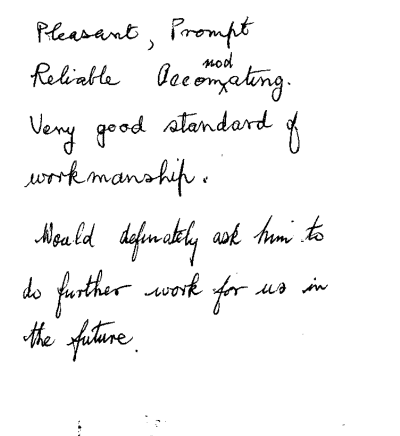 Pleasant, Prompt
Reliable Accommodating.
Very good standard of
workmanship.
Would definately ask him to
do further work for us in
the future.